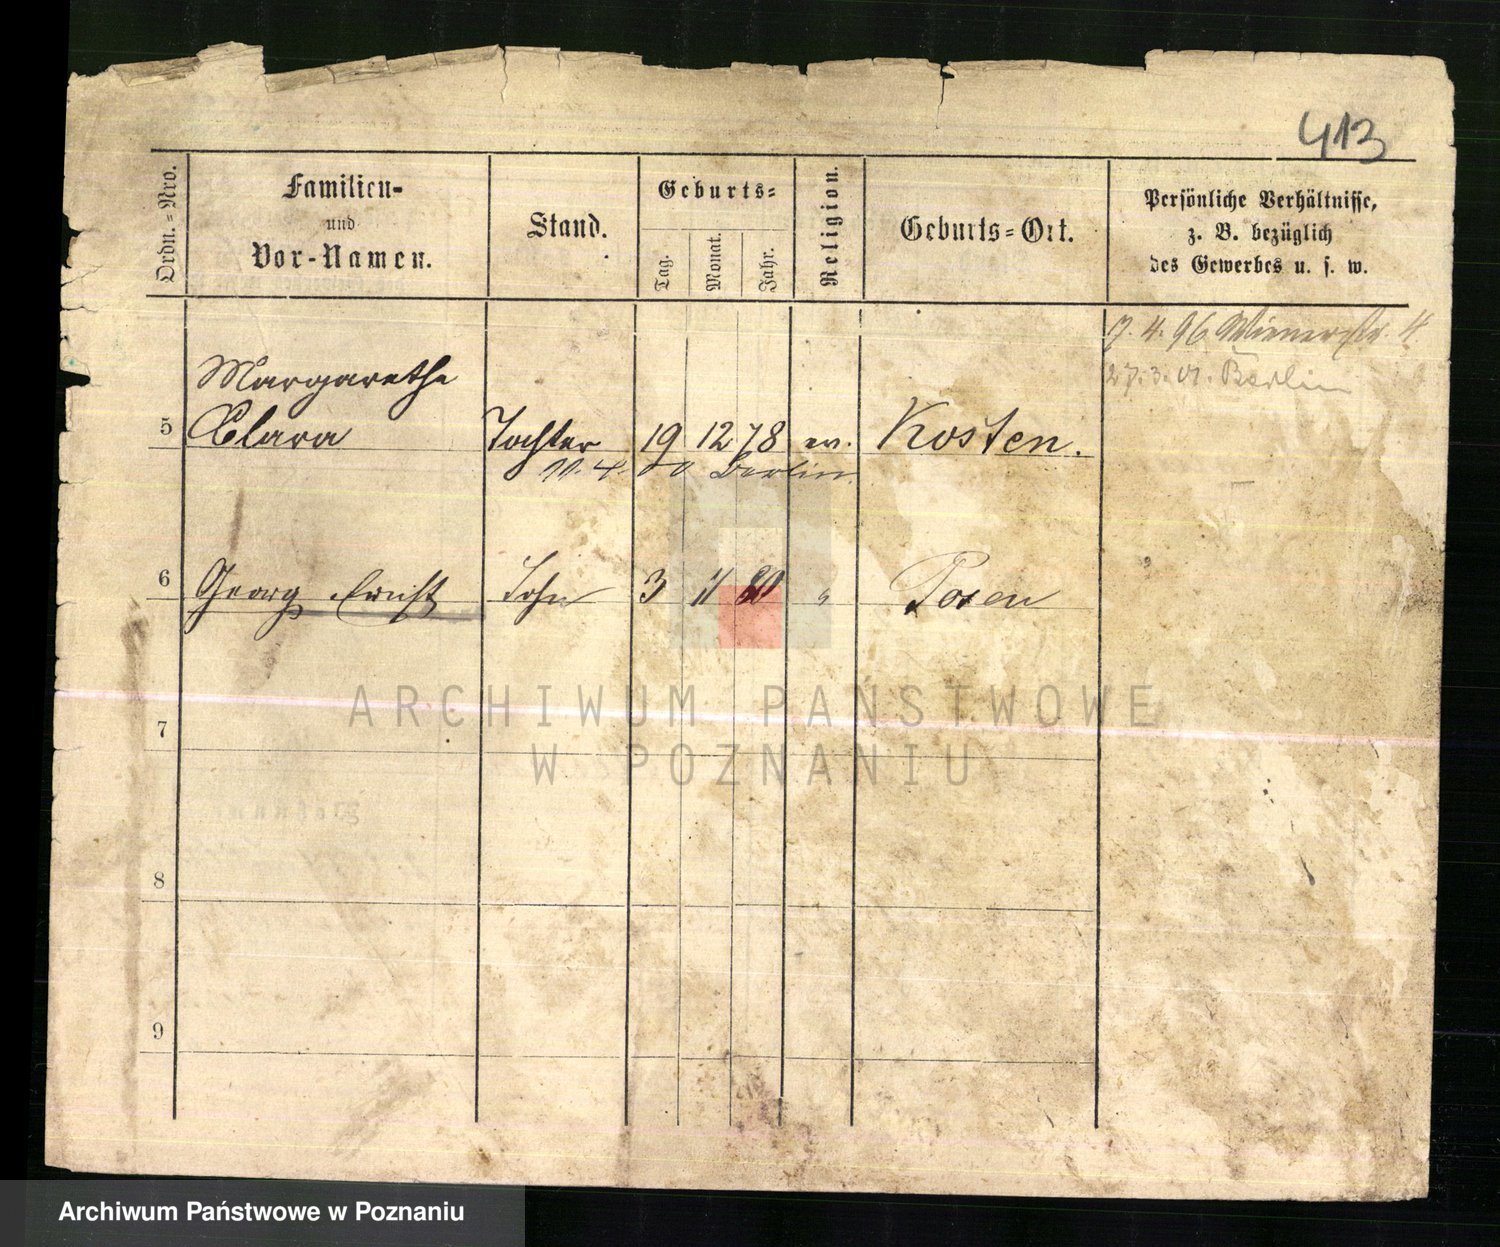 413
Ordn.=Nro.
Familien-
und
Vor-Namen.
Stand.
Geburts=
Tag.
Monat.
Jahr.
Religion.
Geburts=Ort.
Persönliche Verhältnisse,
z. B. bezüglich
des Gewerbes u. s. w.
9. 4. 96 Wienerstr. 4.
27. 3. 01. Berlin
Margarethe
5 Clara Tochter 19 12 78 ev. Kosten.
11. 4. 00 Berlin.
6 Georg Ernst Sohn 3 11 80 " Posen
7
8
9
ARCHIWUM PAŃSTWOWE
W POZNANIU
Archiwum Państwowe w Poznaniu